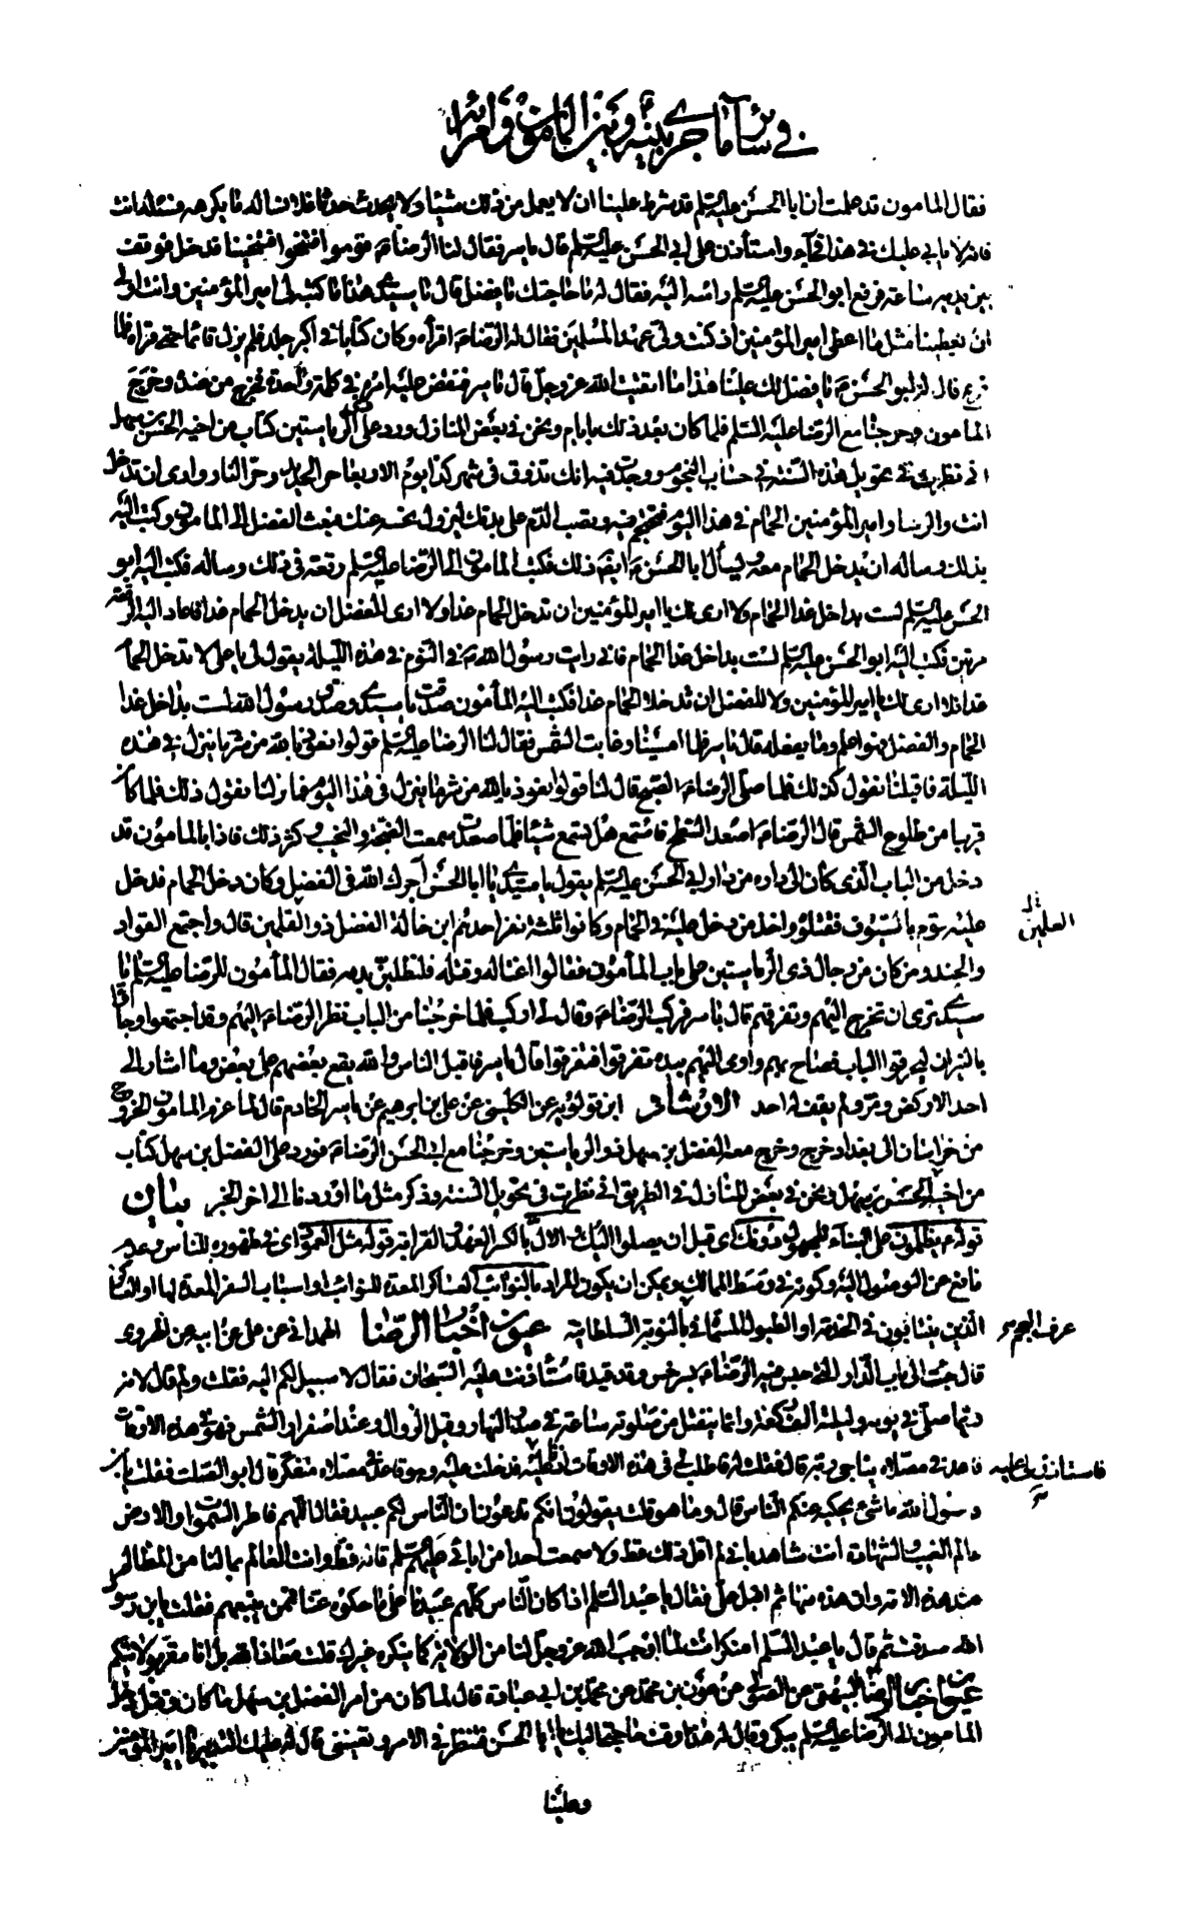 في سائر ما جرى بينه وبين المأمون وأمرائه
فقال المأمون قد علمت ان ابا الحسن عليه السلم قد شرط علينا ان لا يعمل من ذلك شيئا ولا يحدث حدثا فلا نساله ما يكرهه فسئله انت
فانه لا يابى عليك في هذا فجاء واستأذن على ابي الحسن عليه السلم قال ياسر فقال لنا الرضا ع قوموا فتنحوا فتنحينا فدخل فوقف
بين يديه ساعة فرفع ابو الحسن عليه السلم راسه اليه فقال له ما حاجتك يا فضل قال يا سيدي هذا ما كتبه لي امير المؤمنين وانت اولى
ان تعطينا مثل ما اعطى امير المؤمنين اذ كنت ولي عهد المسلمين فقال له الرضا ع اقرأه وكان كتابا في اكبر جلد فلم يزل قائما حتى قراه فلما
فرغ قال له ابو الحسن ع يا فضل لك علينا هذا ما اتقيت الله عز وجل قال ياسر فنقض عليه امره في كلمة واحدة فخرج من عنده وخرج
المأمون وخرجنا مع الرضا عليه السلم فلما كان بعد ذلك بايام ونحن في بعض المنازل ورد على ذي الرياستين كتاب من اخيه الحسن بن سهل
اني نظرت في تحويل هذه السنة في حساب النجوم ووجدت فيه انك تذوق في شهر كذا يوم الاربعا حر الحديد وحر النار وارى ان تدخل
انت والرضا وامير المؤمنين الحمام في هذا اليوم فتحتجم فيه وتصب الدم على بدنك ليزول نحسه عنك فبعث الفضل الى المأمون وكتب اليه
بذلك وساله ان يدخل الحمام معه ويسأل ابا الحسن ع ايضا ذلك فكتب المأمون الى الرضا عليه السلم رقعة في ذلك وساله فكتب اليه ابو
الحسن عليه السلم لست بداخل غدا الحمام ولا ارى لك يا امير المؤمنين ان تدخل الحمام غدا ولا ارى للفضل ان يدخل الحمام غدا فاعاد اليه الرقعة
مرتين فكتب اليه ابو الحسن عليه السلم لست بداخل غدا الحمام فاني رايت رسول الله ص في النوم في هذه الليلة يقول لي يا علي لا تدخل الحمام
غدا فلا ارى لك يا امير المؤمنين ولا للفضل ان تدخلا الحمام غدا فكتب اليه المأمون صدقت يا سيدي وصدق رسول الله لست بداخل غدا
الحمام والفضل فهو اعلم وما يفعله قال ياسر فلما امسينا وغابت الشمس فقال لنا الرضا عليه السلم قولوا نعوذ بالله من شر ما ينزل في هذه
الليلة فاقبلنا نقول كذلك فلما صلى الرضا ع الصبح قال لنا قولوا نعوذ بالله من شر ما ينزل في هذا اليوم فما زلنا نقول ذلك فلما كان
قريبا من طلوع الشمس قال الرضا ع اصعد السطح فاستمع هل تسمع شيئا فلما صعدت سمعت الضجة والنحيب وكثر ذلك فاذا بالمأمون قد
دخل من الباب الذي كان الى داره من دار ابي الحسن عليه السلم يقول يا سيدي يا ابا الحسن آجرك الله في الفضل وكان دخل الحمام فدخل
عليه قوم بالسيوف فقتلوه واخذ من دخل عليه في الحمام وكانوا ثلثة نفر احدهم ابن خالة الفضل ذو القلمين قال واجتمع القواد
العلمين
والجند ومن كان من رجال ذي الرياستين على باب المأمون فقالوا اغتاله وقتله فلنطلبن بدمه فقال المأمون للرضا عليه السلم يا
سيدي ترى ان تخرج اليهم وتفرقهم قال ياسر فركب الرضا ع وقال لي اركب فلما خرجنا من الباب نظر الرضا ع اليهم وقد اجتمعوا وجاؤا
بالنيران ليحرقوا الباب فصاح بهم واومى اليهم بيده تفرقوا فتفرقوا قال ياسر فاقبل الناس والله يقع بعضهم على بعض وما اشار الى
احد الا ركض ومر ولم يقف له احد الارشاد ابن قولويه عن الكليني عن علي بن ابرهيم عن ياسر الخادم قال لما عزم المأمون الخروج
من خراسان الى بغداد خرج وخرج معه الفضل بن سهل ذو الرياستين وخرجنا مع ابي الحسن الرضا ع فورد على الفضل بن سهل كتاب
من اخيه الحسن بن سهل ونحن في بعض المنازل في الطريق اني نظرت في تحويل السنة وذكر مثل ما اوردنا الى اخر الخبر بيان
قوله ع يظلمون على البناء للمجهول دونك اي قبل ان يصلوا اليك والال بالكسر العهد والقرابة قوله مثل العمود اي في ظهوره للناس وعدم
مانع عن الوصول اليه وكونه في وسط الممالك ويمكن ان يكون المراد بالنوائب العساكر المعدة للنوائب او اسباب السفر المعدة لها او العساكر
الذين ينتابون في الخدمة او الطبول المسماة في بالنوبة السلطانية عيون أخبار الرضا الهمداني عن علي عن ابيه عن الهروي
عرف العجم
قال جئت الى باب الدار التي حبس فيها الرضا ع بسرخس وقد قيد فاستأذنت عليه السجان فقال لا سبيل لكم اليه فقلت ولم قال لانه
ربما صلى في يومه وليلته الف ركعة وانما ينفتل من صلوته ساعة في صدر النهار وقبل الزوال وعند اصفرار الشمس فهو في هذه الاوقات
قاعد في مصلاه يناجي ربه قال فقلت له فاطلب لي في هذه الاوقات اذنا عليه فدخلت عليه وهو قاعد في مصلاه متفكر قال ابو الصلت فقلت يا بن
فاستاذن لي عليه
رسول الله ما شيء يحكيه عنكم الناس قال وما هو قلت يقولون انكم تدعون ان الناس لكم عبيد فقال اللهم فاطر السموات والارض
عالم الغيب والشهادة انت شاهد باني لم اقل ذلك قط ولا سمعت احدا من ابائي عليهم السلم قاله قط وانت العالم بما لنا من المظالم
عند هذه الامة وان هذه منها ثم اقبل علي فقال يا عبد السلم اذا كان الناس كلهم عبيدنا على ما حكوه عنا فممن نبيعهم فقلت يا بن رسول
الله صدقت ثم قال يا عبد السلم امنكر انت لما اوجب الله عز وجل لنا من الولاية كما ينكره غيرك قلت معاذ الله بل انا مقر بولايتكم
عيون اخبار الرضا البيهقي عن الصولي عن عون بن محمد عن محمد بن ابي عبادة قال لما كان من امر الفضل بن سهل ما كان وقتل دخل
المأمون الى الرضا عليه السلم يبكي وقال له هذا وقت حاجتي اليك يا ابا الحسن فتنظر في الامر وتعينني قال له عليك التدبير يا امير المؤمنين
وعلينا